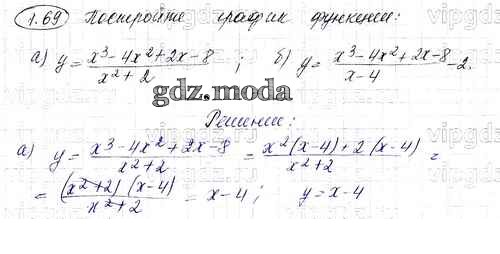 1.69 Постройте график функции:
а) y = (x³ - 4x² + 2x - 8)/(x² + 2) ; б) y = (x³ - 4x² + 2x - 8)/(x - 4) - 2.
gdz.moda
Решение:
а) y = (x³ - 4x² + 2x - 8)/(x² + 2) = (x²(x - 4) + 2(x - 4))/(x² + 2) =
= ((x² + 2)(x - 4))/(x² + 2) = x - 4 ; y = x - 4